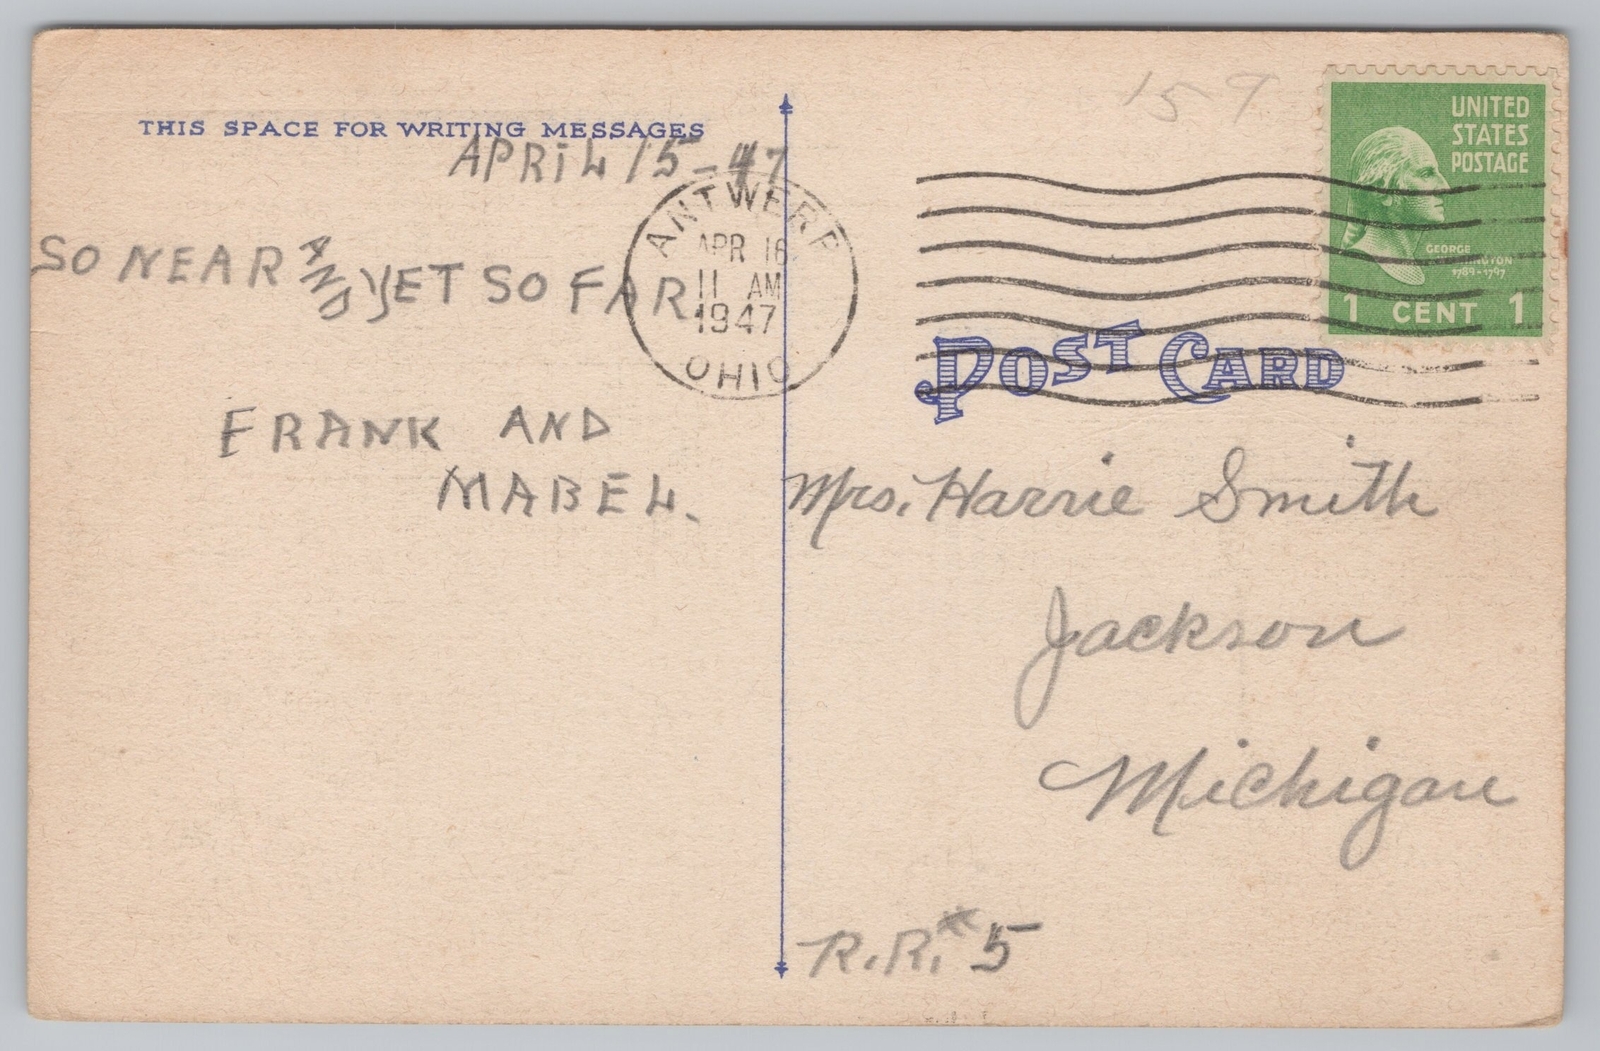 THIS SPACE FOR WRITING MESSAGES
APRIL 15-47
SO NEAR AND YET SO FAR.
FRANK AND
MABEL.
ANTWERP
APR 16
11 AM
1947
OHIO
159
UNITED
STATES
POSTAGE
GEORGE
WASHINGTON
1789-1797
1 CENT 1
POST CARD
Mrs. Harrie Smith
Jackson
Michigan
R.R. # 5